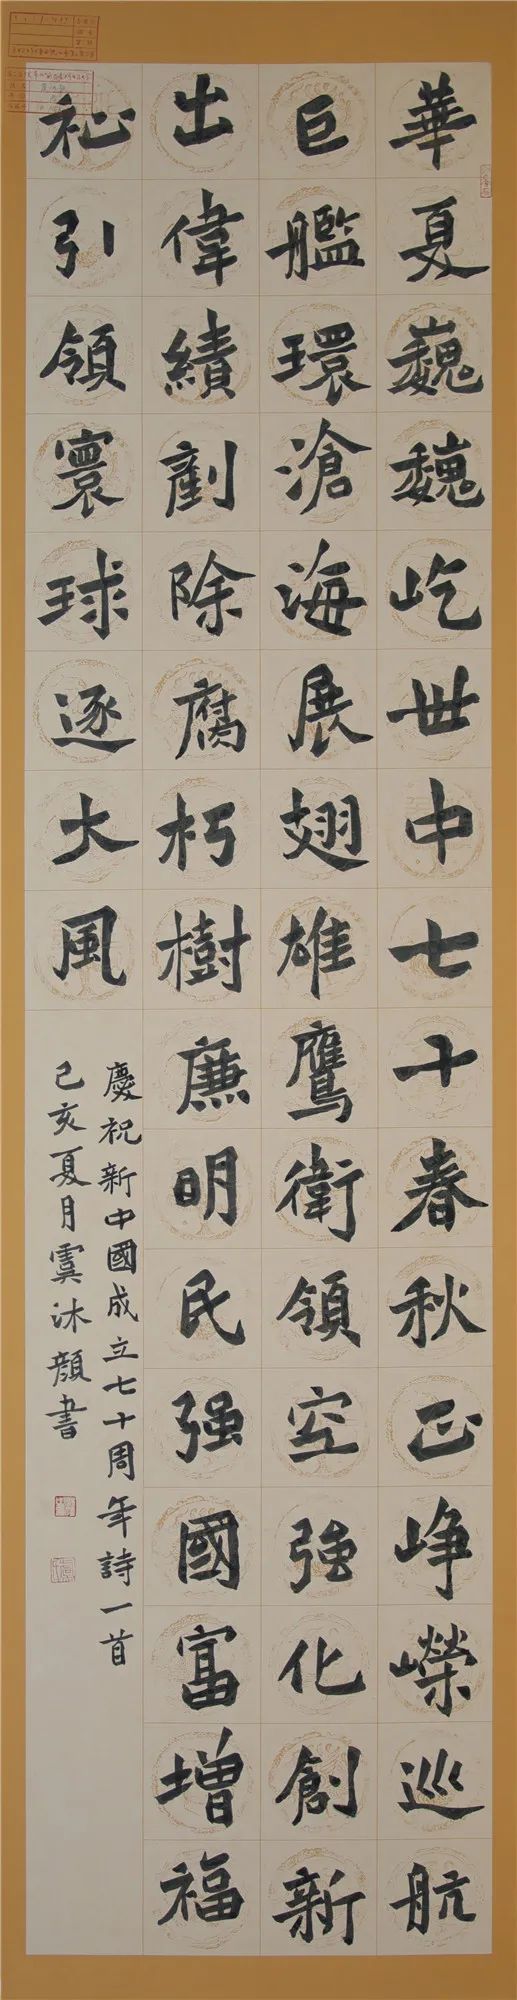 華夏巍巍屹世中七十春秋正崢嶸巡航
巨艦環滄海展翅雄鷹衛領空強化創新
出偉績剷除腐朽樹廉明民强國富增福
祉引領寰球逐大風
慶祝新中國成立七十周年詩一首
己亥夏月虞沐顏書